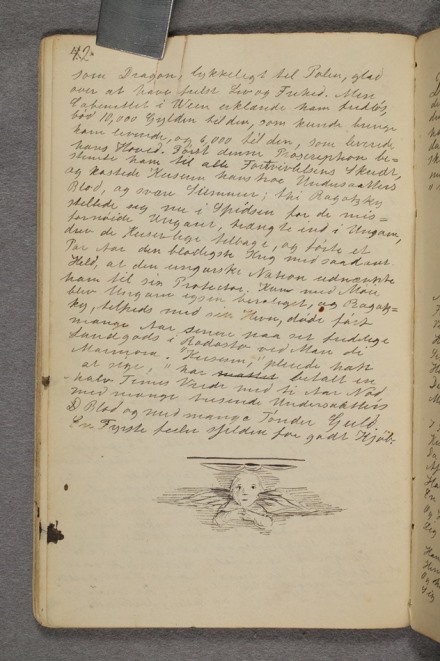 42.
som Dragon, lykkeligt til Polen, glad
over at have frelst Liv og Frihed. Men
Cabinettet i Wien erklærede ham fredløs,
bød 10,000 Gylden til den, som kunde bringe
ham levende, og 6,000 til den, som leverede
hans Hoved. Først denne Proscription be-
stemte ham til alle Fortvivlelsens Skridt,
og kostede Keiseren hans troe Undersaatters
Blod, og svære Summer; thi Ragotzky
stillede sig nu i Spidsen for de mis-
fornøide Ungarer, trængte ind i Ungarn,
drev de Keiserlige tilbage, og førte et
Par Aar den blodigste Krig med saadant
Held, at den ungarske Nation udnævnte
ham til sin Protector. Kun med Møie
blev Ungarn igjen beroliget, og Ragotz-
ky, tilfreds med sin Hevn, døde først
mange Aar senere paa sit fredelige
Landgods i Rodosto ved Mare di
Marmora. "Keiseren," pleiede han
at sige, "har maattet betalt en
halv Times Vrede med ti Aar Nød
med mange tusende Undersaatters
Blod og med mange Tønder Guld.
En Fyrste feiler sjelden for godt Kjøb.